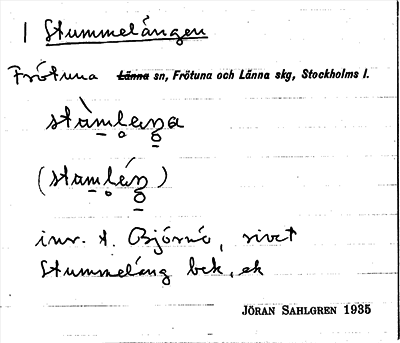 1 Stummelången
Frötuna Länna sn, Frötuna och Länna skg, Stockholms l.
stàmlaŋa
(stamláŋ)
inv. t. Björnö,
Stummelång bek, ek
JÖRAN SAHLGREN 1935